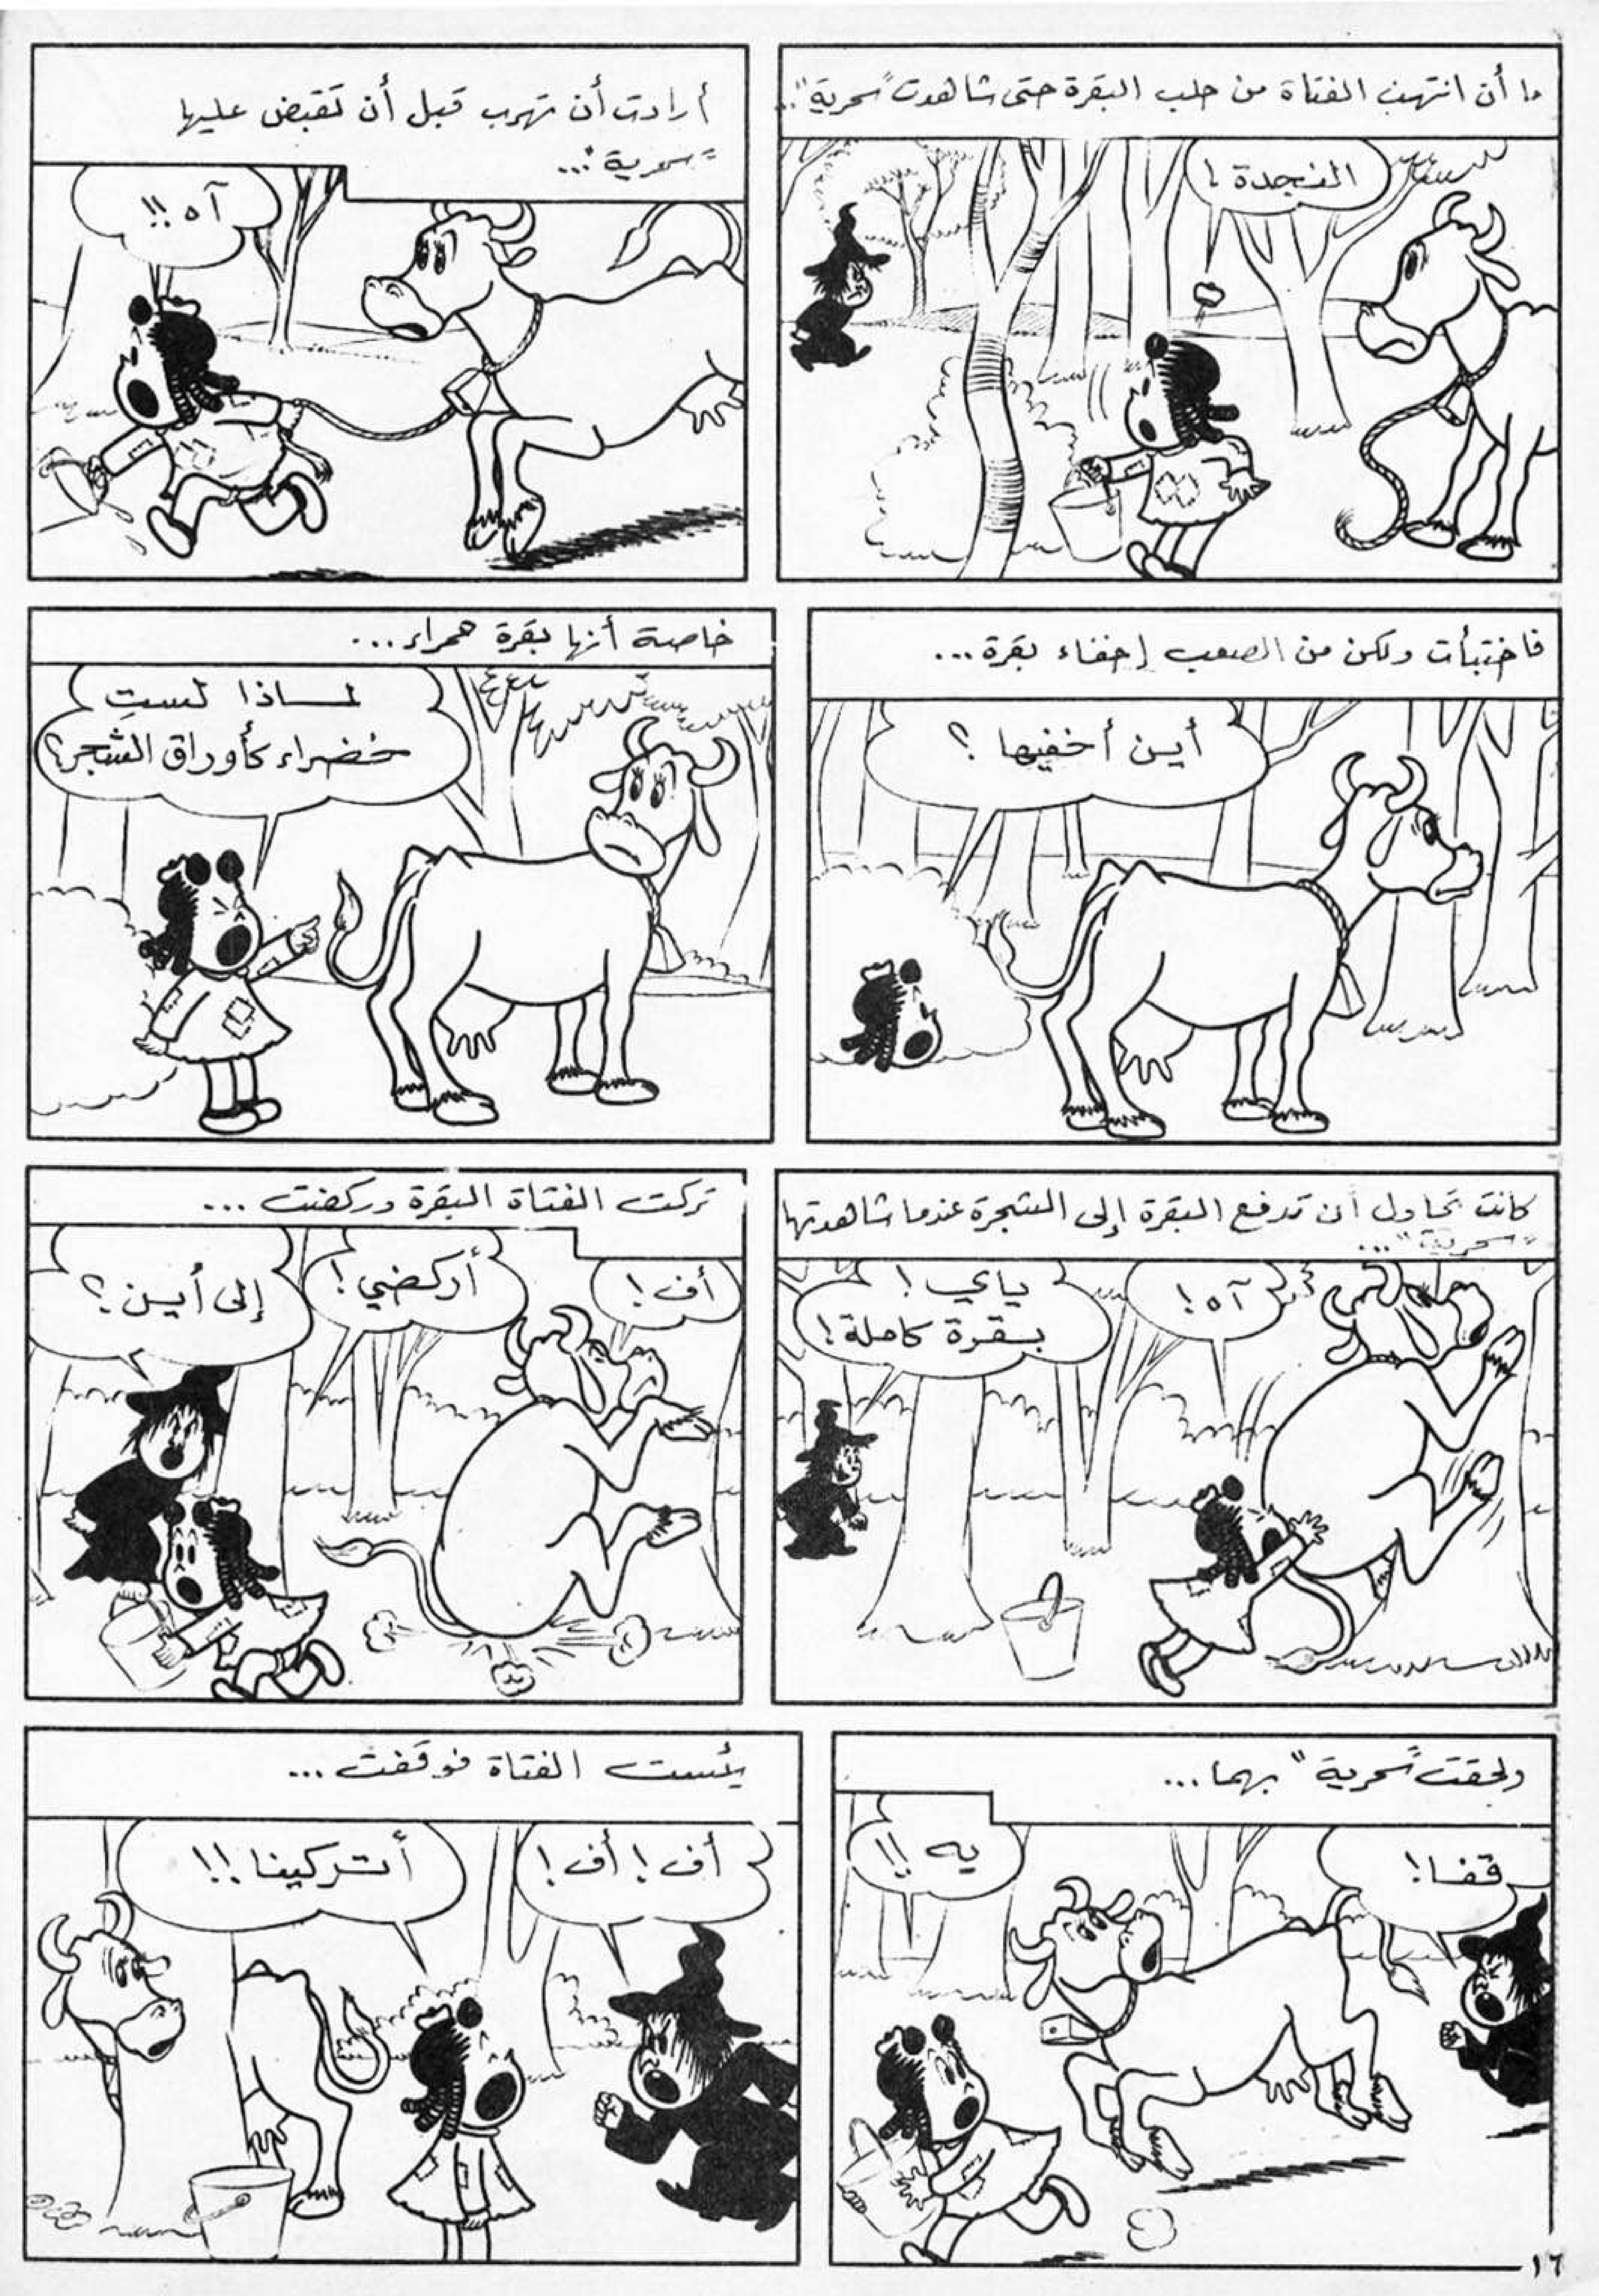 ما أن انتهت الفتاة من حلب البقرة حتى شاهدت "سحرية"..
النجدة !
أرادت أن تهرب قبل أن تقبض عليها
"سحرية"...
آه !!
فاختبأت ولكن من الصعب إخفاء بقرة...
أين أخفيها ؟
خاصة أنها بقرة حمراء...
لماذا لستِ
خضراء كأوراق الشجر؟
كانت تحاول أن تدفع البقرة إلى الشجرة عندما شاهدتها
"سحرية"...
آه !
ياي !
بقرة كاملة !
تركت الفتاة البقرة وركضت ...
أف !
أركضي !
إلى أين ؟
ولحقت "سحرية" بهما...
قفا !
يه !!
يئست الفتاة فوقفت ...
أف ! أف !
أتتركينا !!
١٦